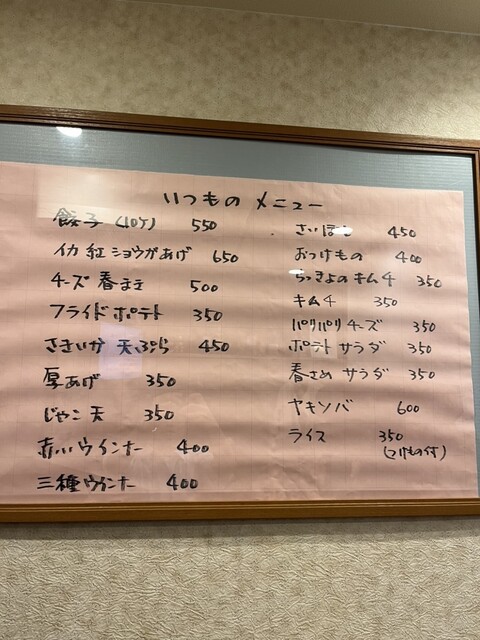 いつもの メニュー
餃子 (10ケ) 550
イカ 紅ショウガあげ 650
チーズ 春まき 500
フライドポテト 350
さきいか 天ぷら 450
厚あげ 350
じゃこ天 350
赤いウインナー 400
三種ウインナー 400
さいぼし 450
おつけもの 400
らっきょのキムチ 350
キムチ 350
パリパリチーズ 350
ポテトサラダ 350
春さめ サラダ 350
ヤキソバ 600
ライス 350
(つけもの付)